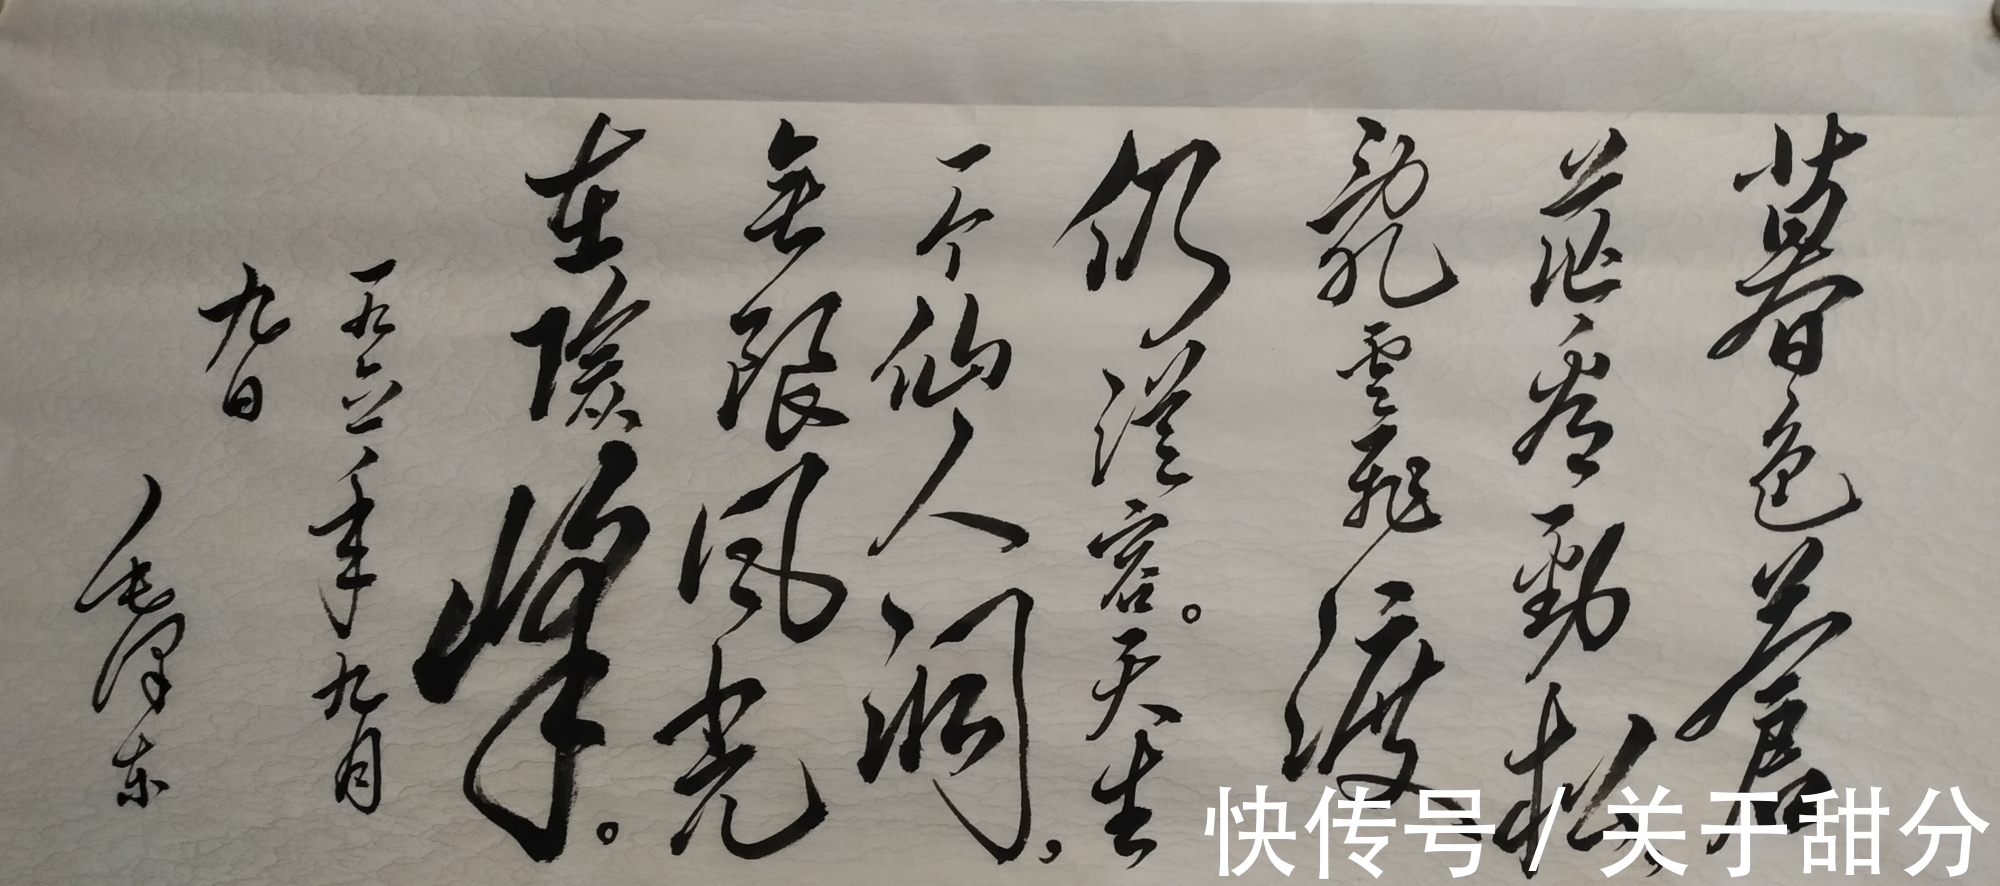 暮色苍
茫看劲松，
乱云飞渡
仍從容。天生
一个仙人洞，
無限风光
在險峰。
一九六一年九月
九日
毛泽东
快传号 / 关于甜分